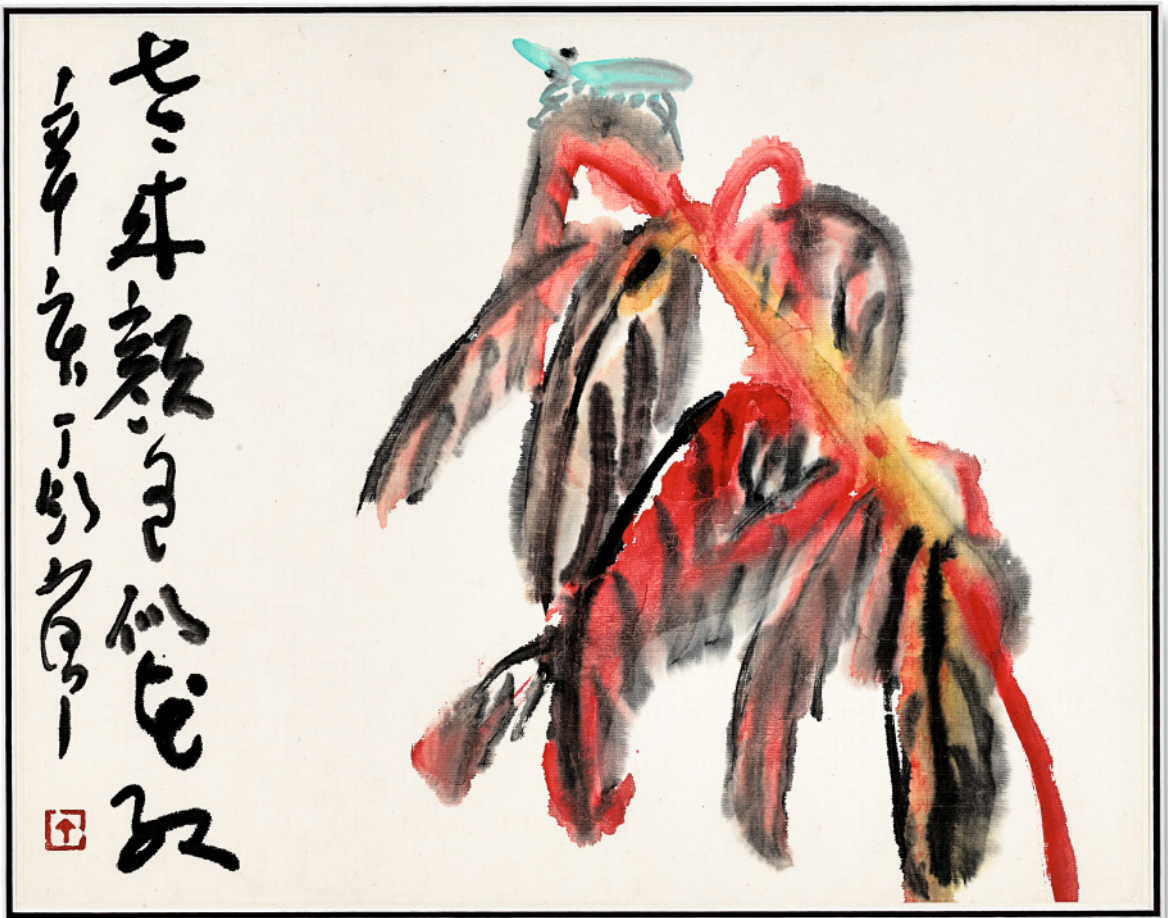 老來顏色似花紅
辛亥丁衍庸